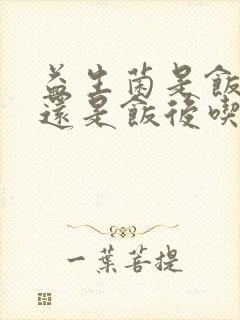 益生菌是飯
還是飯後喫
一葉菩提